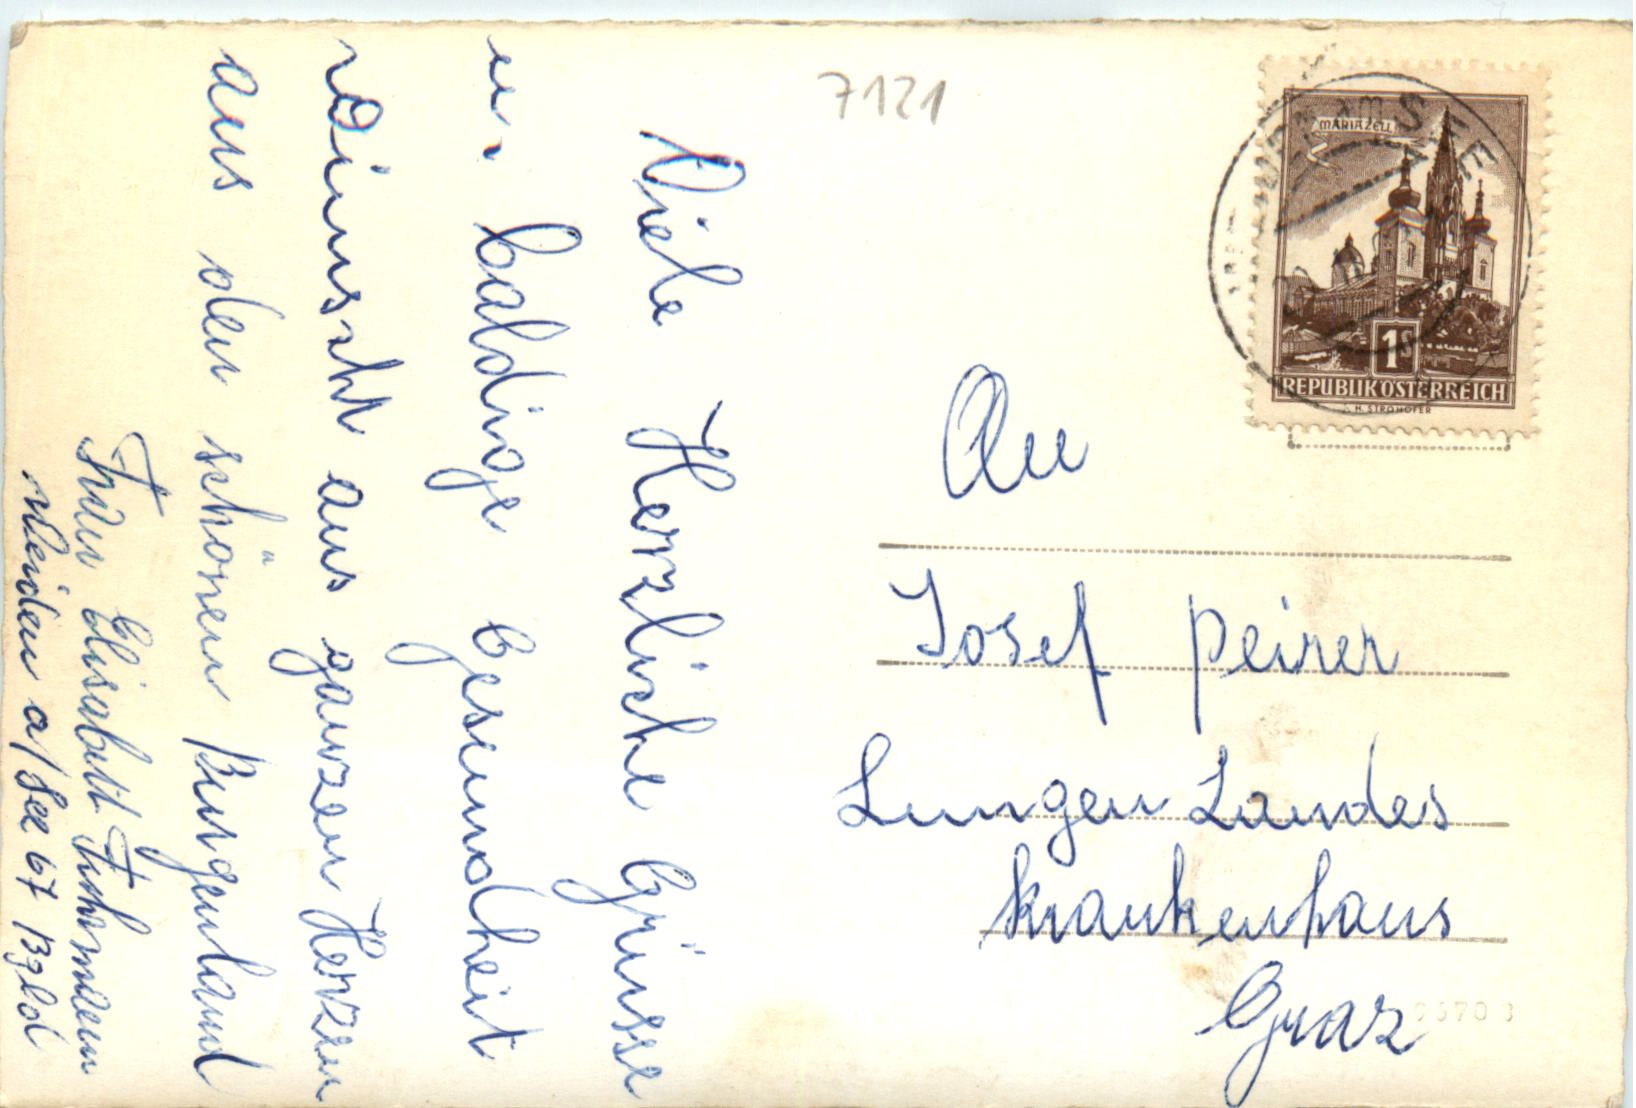 Viele Herzliche Grüsse
u. baldige Gesundheit
wünscht aus ganzen Herzen
aus den schönen Burgenland
Frau Elisabett
Weiden a/See 67 Bgld
7121
MARIAZELL
1S
REPUBLIK ÖSTERREICH
H. STROHOFER
AM SEE
An
Josef Peirer
Lungen Landes
Krankenhaus
Graz